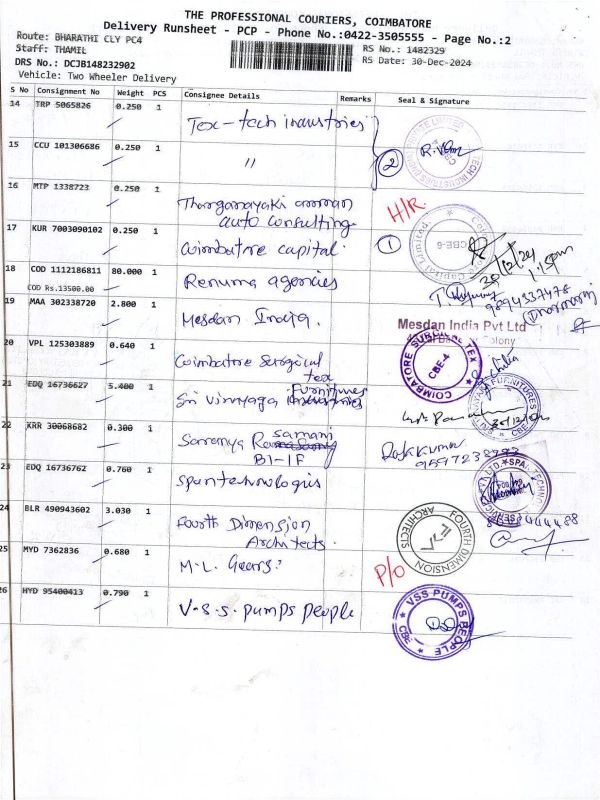 THE PROFESSIONAL COURIERS, COIMBATORE
Delivery Runsheet - PCP - Phone No.:0422-3505555 - Page No.:2
Route: BHARATHI CLY PC4
RS No.: 1482329
Staff: THAMIL
RS Date: 30-Dec-2024
DRS No.: DCJB148232902
Vehicle: Two Wheeler Delivery
S No Consignment No Weight PCS Consignee Details Remarks Seal & Signature
14 TRP 5065826 0.250 1 Tex-tech industries
15 CCU 101306686 0.250 1 "
2 R.
16 MTP 1338723 0.250 1 Thanganayaki amman H/R
auto consulting
17 KUR 7003090102 0.250 1 Coimbatore capital. 1
CBE-6
30/12/24
1:15pm
18 COD 1112186811 80.000 1 Renuma agencies
COD Rs.13500.00
9894337478
(Dharmaraj)
19 MAA 302338720 2.800 1 Mesdan India.
Mesdan India Pvt Ltd
Colony
20 VPL 125303889 0.640 1 Coimbatore Surgical
tex
COIMBATORE SURGICAL TEX
CBE-4
21 EDQ 16736627 5.400 1 Sri Vinnyaga Furnitures
FURNITURES
30/12/24
22 KRR 30068682 0.300 1 Saranya samani
B1-1F
Rajkumar
23 EDQ 16736762 0.760 1 Spantehnologies
24 BLR 490943602 3.030 1 Fourth Dimension
Architects.
FOURTH DIMENSION ARCHITECTS
25 MYD 7362836 0.680 1 M.L. Gears. P/O
26 HYD 95400413 0.790 1 V.S.S. pumps people
VSS PUMPS PEOPLE
CBE